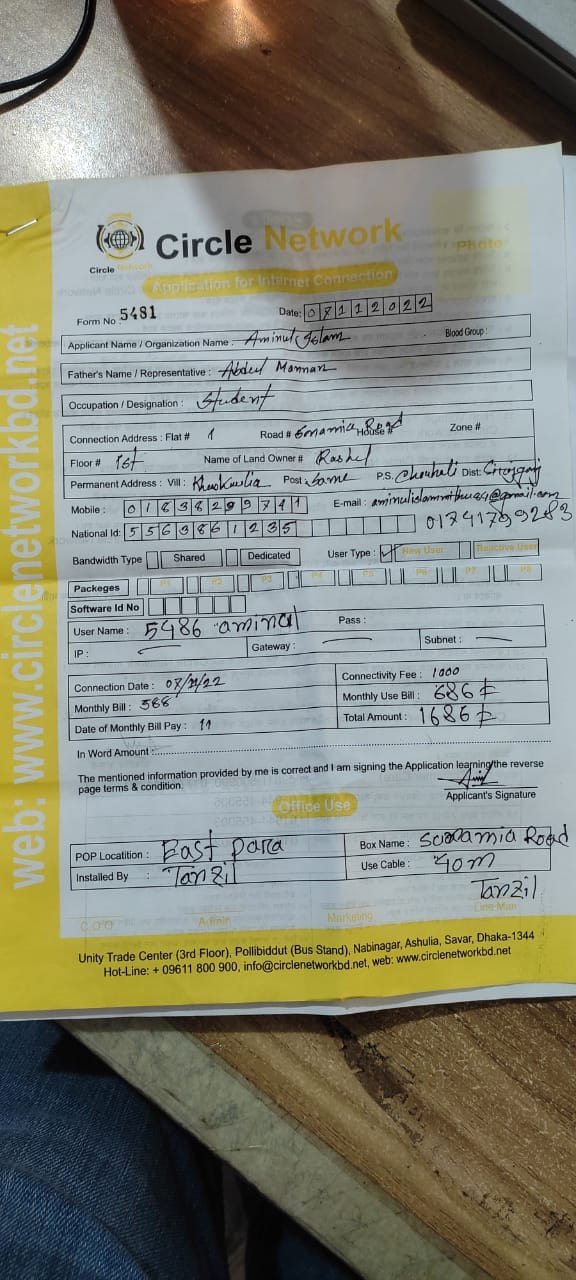 web: www.circlenetworkbd.net
Circle Network
Circle Network
Photo
Application for Internet Connection
Form No : 5481
Date: 08112022
Applicant Name / Organization Name : Aminul Islam Blood Group :
Father's Name / Representative : Abdul Mannan
Occupation / Designation : Student
Connection Address : Flat # 1 Road # Road House # Zone #
Floor # 1st Name of Land Owner # Rashel
Permanent Address : Vill : Post : Same P.S. Chouhali Dist:
Mobile : E-mail :
National Id: 5563861235 01741799283
Bandwidth Type Shared Dedicated User Type : New User Reactive User
Packeges P1 P2 P3 P4 P5 P6 P7 P8
Software Id No
User Name : 5486 aminul Pass :
IP : Gateway : Subnet :
Connection Date : Connectivity Fee : 1000
Monthly Bill : Monthly Use Bill : 686
Date of Monthly Bill Pay : Total Amount : 1686
In Word Amount :
The mentioned information provided by me is correct and I am signing the Application learning/the reverse
page terms & condition.
Applicant's Signature
Office Use
POP Locatition : East para Box Name : Road
Installed By : Tanzil Use Cable : 40m
Tanzil
C.O.O Admin Marketing Line Man
Unity Trade Center (3rd Floor), Pollibiddut (Bus Stand), Nabinagar, Ashulia, Savar, Dhaka-1344
Hot-Line: + 09611 800 900, info@circlenetworkbd.net, web: www.circlenetworkbd.net